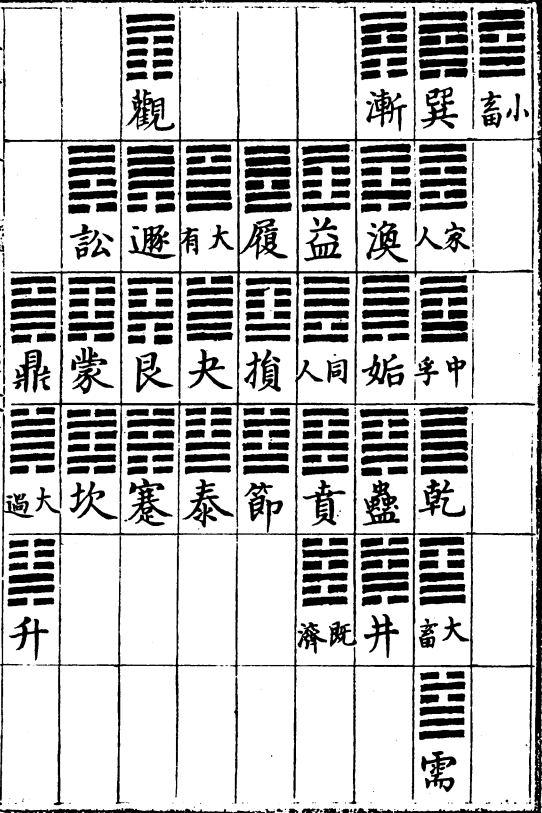 小畜 巽 漸 觀
家人 渙 益 履 大有 遯 訟
中孚 姤 同人 損 夬 艮 蒙 鼎
乾 蠱 賁 節 泰 蹇 坎 大過
大畜 井 既濟 升
需